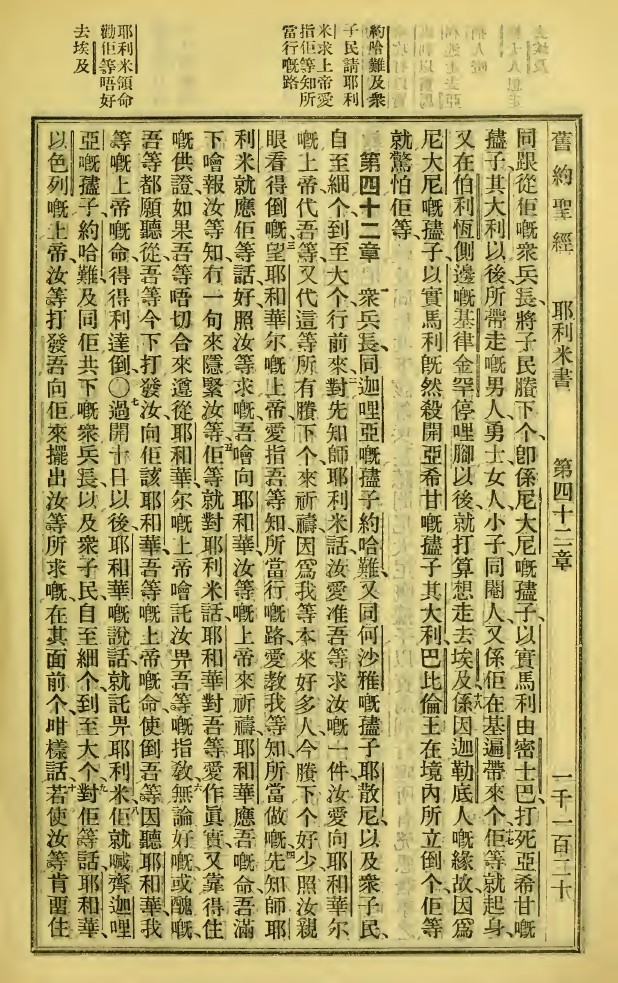 舊約聖經 耶利米書 第四十二章 一千一百二十
約哈難及衆
子民請耶利
米求上帝愛
指佢等知所
當行嘅路
耶利米領命
勸佢等唔好
去埃及
同跟從佢嘅衆兵長、將子民賸下个、卽係尼大尼嘅孻子、以實馬利由密士巴打死亞希甘嘅
孻子其大利以後所帶走嘅男人、勇士、女人、小子、同閹人、又係佢在基遍帶來个、十七佢等就起身、
又在伯利恆側邊嘅基律金罕停哩腳、以後就打算想走去埃及、十八係因迦勒底人嘅緣故、因爲
尼大尼嘅孻子以實馬利旣然殺開亞希甘嘅孻子其大利、巴比倫王在境內所立倒个、佢等
就驚怕佢等、
第四十二章 一衆兵長、同迦哩亞嘅孻子約哈難、又同何沙雅嘅孻子耶散尼、以及衆子民、
自至細个到至大个、行前來、二對先知師耶利米話、汝愛准吾等求汝嘅一件、汝愛向耶和華尔
嘅上帝代吾等、又代這等所有賸下个來祈禱、因爲我等本來好多人、今賸下个好少、照汝親
眼看得倒嘅、三望耶和華尔嘅上帝、愛指吾等知所當行嘅路、愛教我等知所當做嘅、四先知師耶
利米就應佢等話、好、照汝等求嘅、吾噲向耶和華汝等嘅上帝來祈禱、耶和華應吾嘅命、吾滿
下噲報汝等知、冇一句來隱緊汝等、五佢等就對耶利米話、耶和華對吾等愛作眞實又靠得住
嘅供證、如果吾等唔切合來遵從耶和華尔嘅上帝噲託汝畀吾等嘅指敎、六無論好嘅或醜嘅、
吾等都願聽從、吾等今下打發汝向佢該耶和華吾等嘅上帝嘅命、使倒吾等因聽耶和華我
等嘅上帝嘅命、得得利達倒、〇七過開十日以後、耶和華嘅說話就託畀耶利米、八佢就喊齊迦哩
亞嘅孻子約哈難、及同佢共下嘅衆兵長、以及衆子民、自至細个到至大个、九對佢等話、耶和華、
以色列嘅上帝、汝等打發吾向佢來擺出汝等所求嘅在其面前个、咁樣話、十若使汝等肯畱住